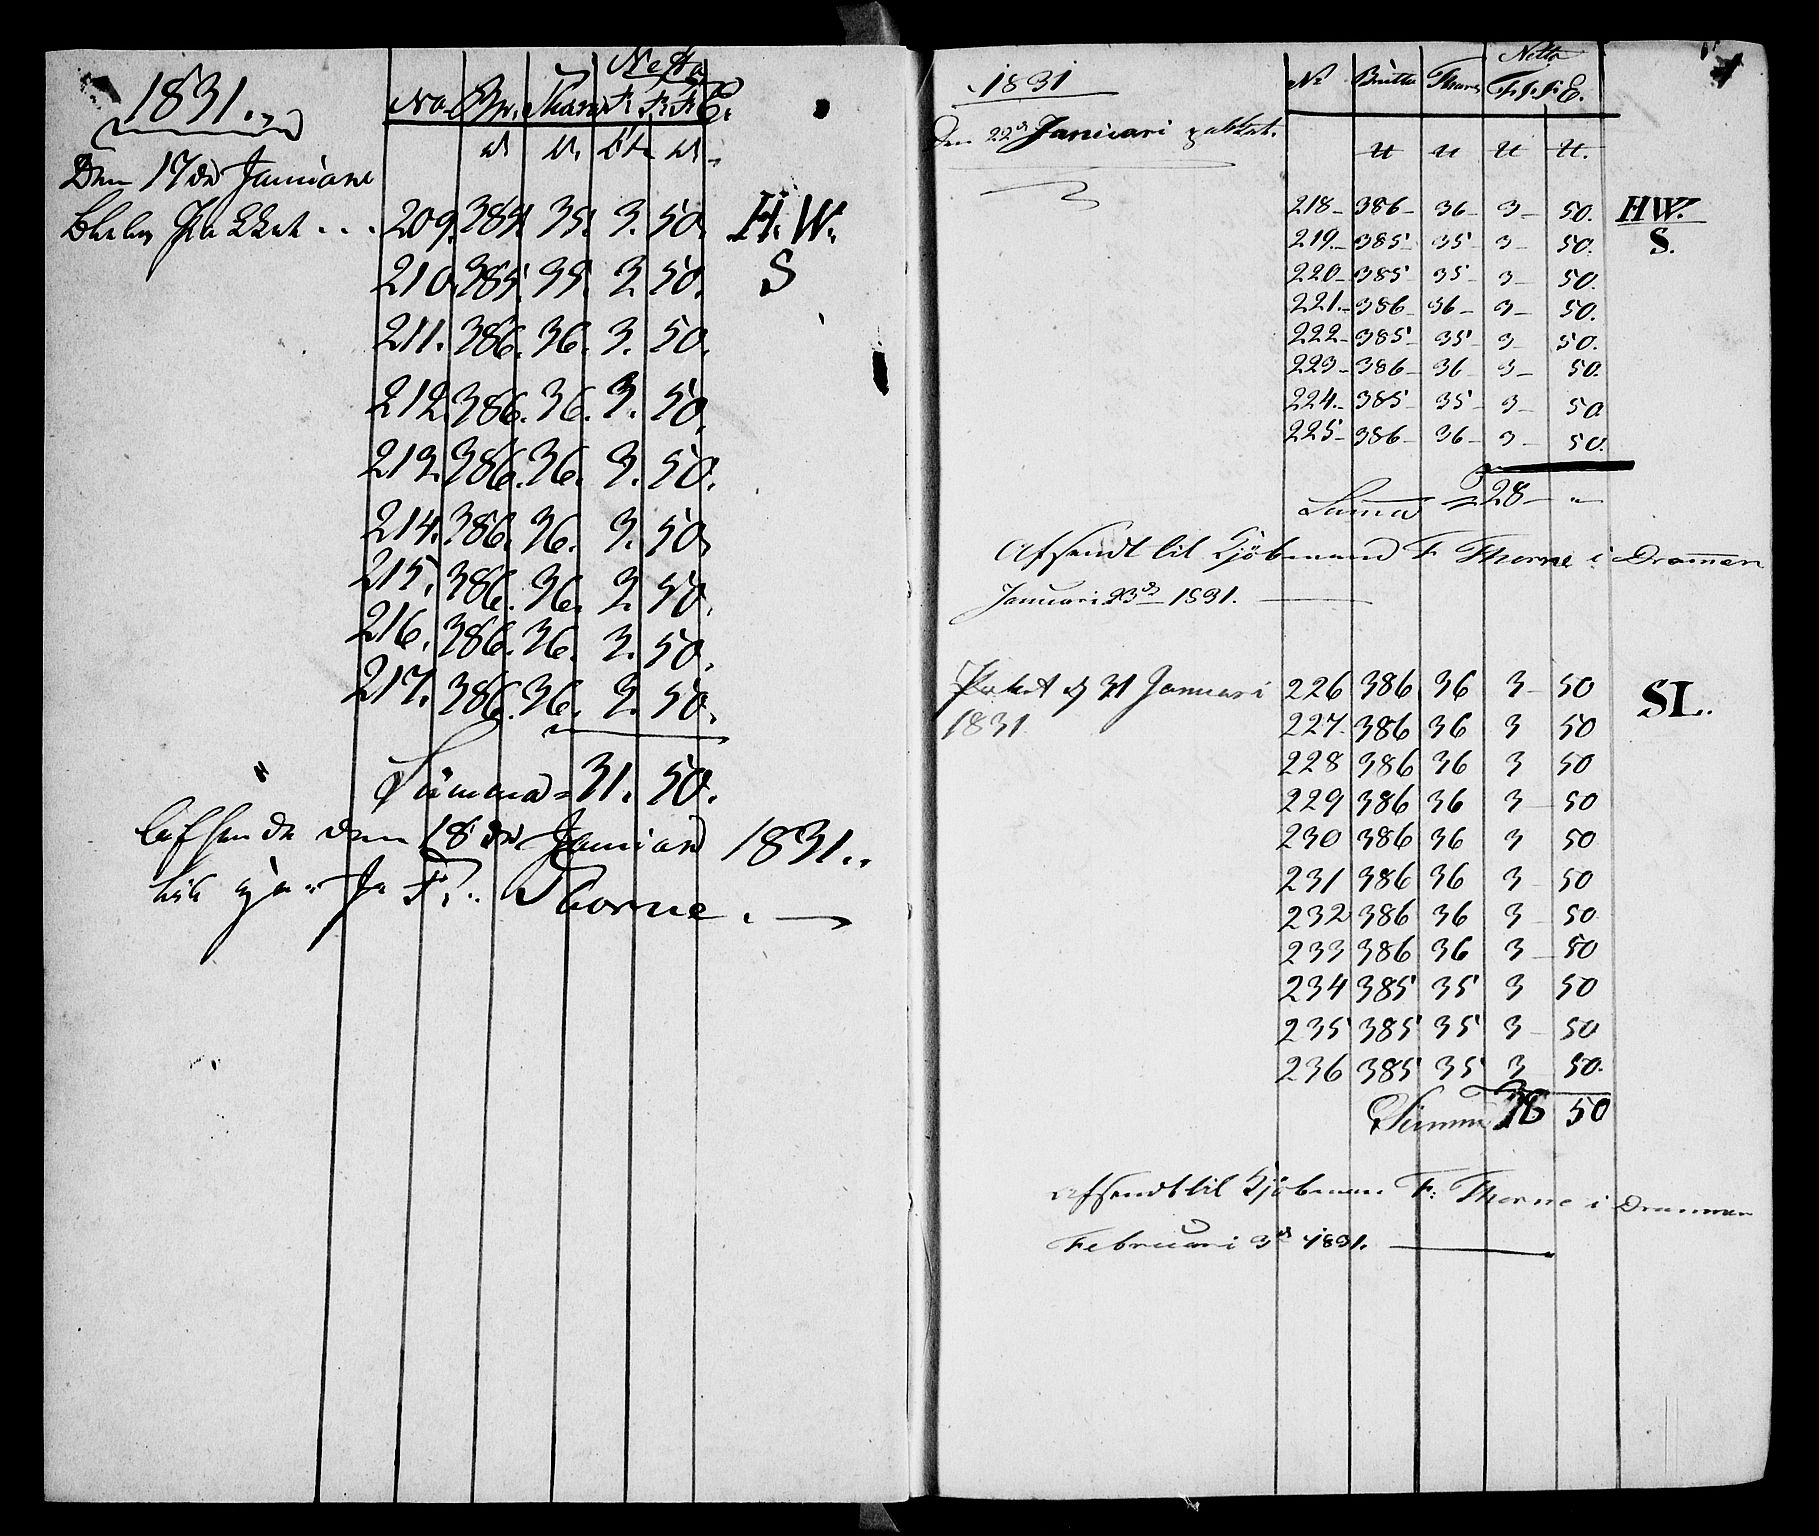 1831.
No Br. Thara Netto
Den 17de Januari
209. 385. 35. 3. 50. H. W.
210. 385. 35. 3. 50. S
211. 386. 36. 3. 50.
212. 386. 36. 3. 50.
213. 386. 36. 3. 50.
214. 386. 36. 3. 50
215. 386. 36. 3. 50.
216. 386. 36. 3. 50.
217. 386. 36. 3. 50.
Summa = 31. 50.
den 18de Januari 1831..
F. Thorne.
1831
No Brutto Thara Netto
Den 22de Januari
218 - 386 - 36 - 3 - 50. HW.
219 - 385 - 35 - 3 - 50. S.
220 - 385 - 35 - 3 - 50.
221 - 386 - 36 - 3 - 50.
222 - 385 - 35 - 3 - 50.
223 - 386 - 36 - 3 - 50.
224 - 385 - 35 - 3 - 50
225 - 386 - 36 - 3 - 50.
Summa = 28 - "
Afsendt til Kjöbmand F Thorne i Drammen
Januari 23de 1831.
Paket d 31 Januari 226 386 36 3 - 50 SL.
1831 227 386 36 3 50
228 386 36 3 50
229 386 36 3 - 50
230 386 36 3 50
231 386 36 3 - 50
232 386 36 3 - 50
233 386 36 3 - 50
234 385 35 3 50
235 385 35 3 - 50
236 385 35 3 50.
Summa 50
Afsendt til Kjöbman F: Thorne i Drammen
Februari 3de 1831.